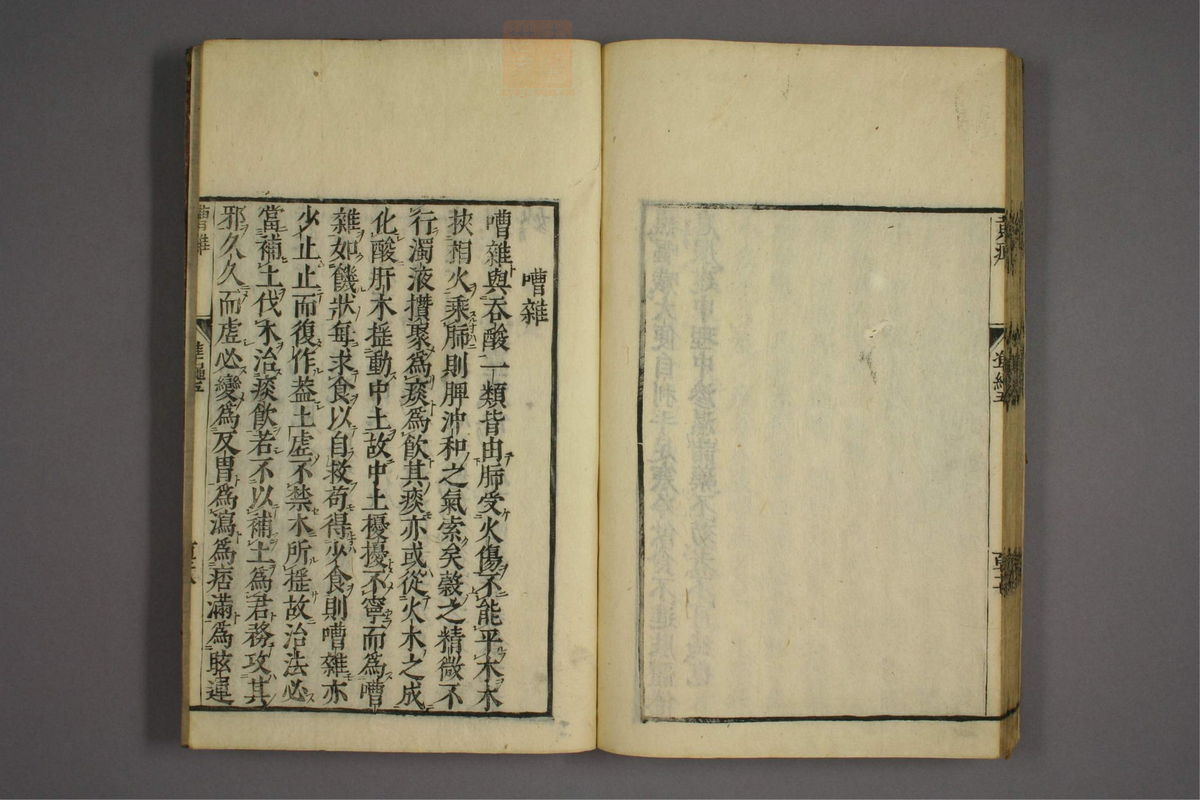 黄疸
嘈雜
嘈雜與吞酸一類皆由肺受火傷不能平木木
挾相火乘肺則脾冲和之氣索矣穀之精微不
行濁液攢聚為痰為飲其痰亦或從火木之成
化酸肝木揺動中土故中土擾擾不寧而為嘈
雜如饑狀每求食以自救苟得少食則嘈雜亦
少止止而復作盖土虚不禁木所揺故治法必
當補土伐木治痰飲若不以補土為君務攻其
邪久久而虚必變為反胃為瀉為痞滿為眩運
嘈雜